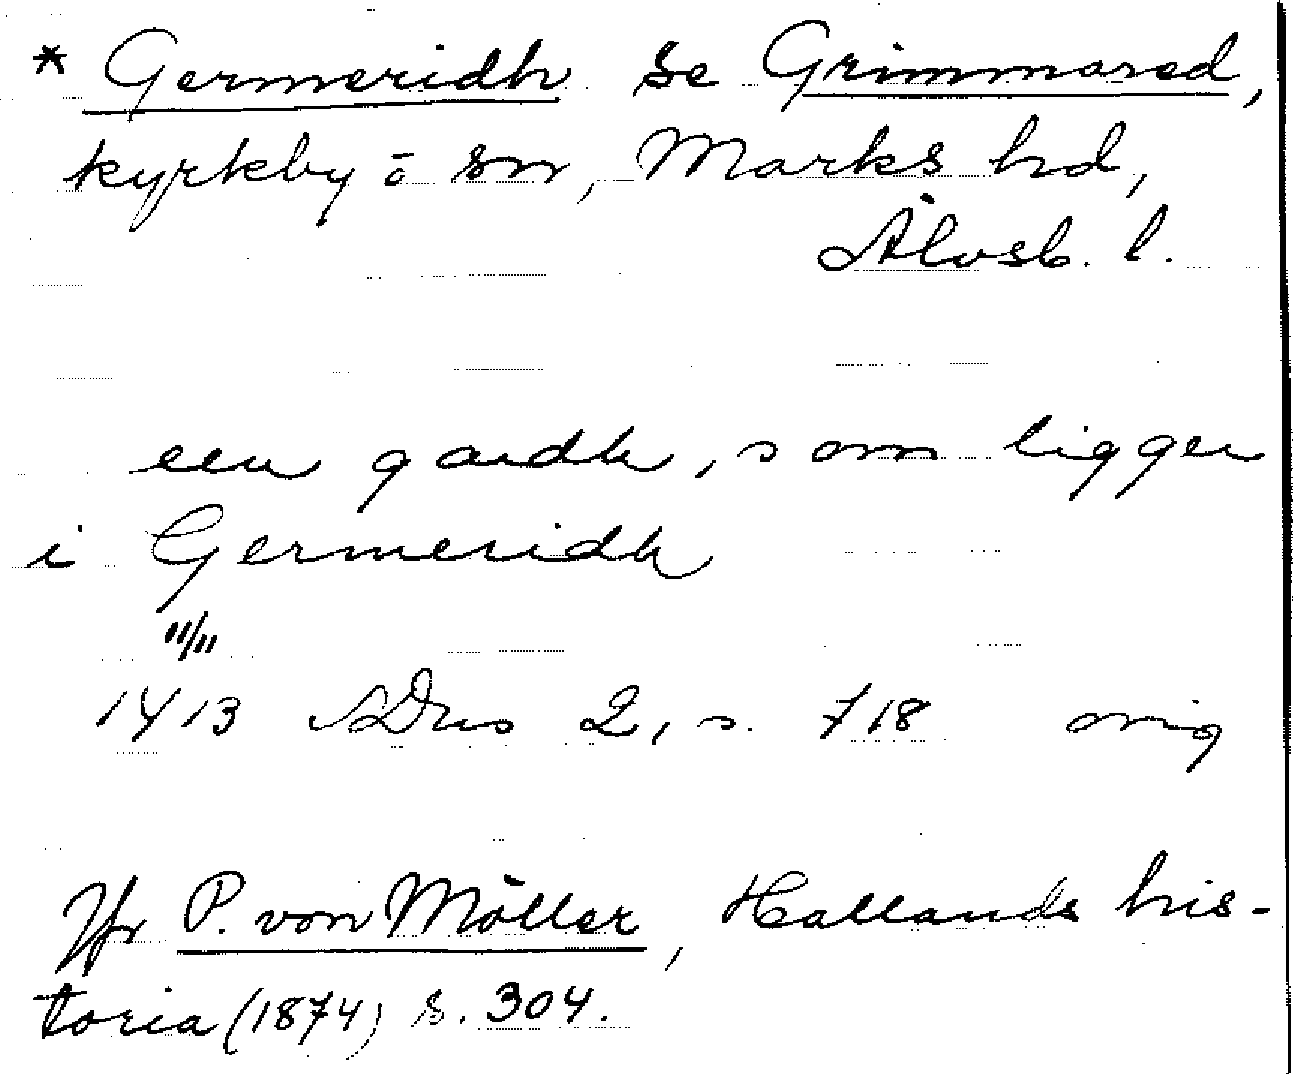 * Germeridh se Grimmared,
kyrkby o sn, Marks hd,
Älvsb. l.
een gardh, som ligger
i Germeridh
11/11
1413 SDns 2, s. 718 orig
Jfr P. von Möller, Hallands his-
toria (1874) s. 304.